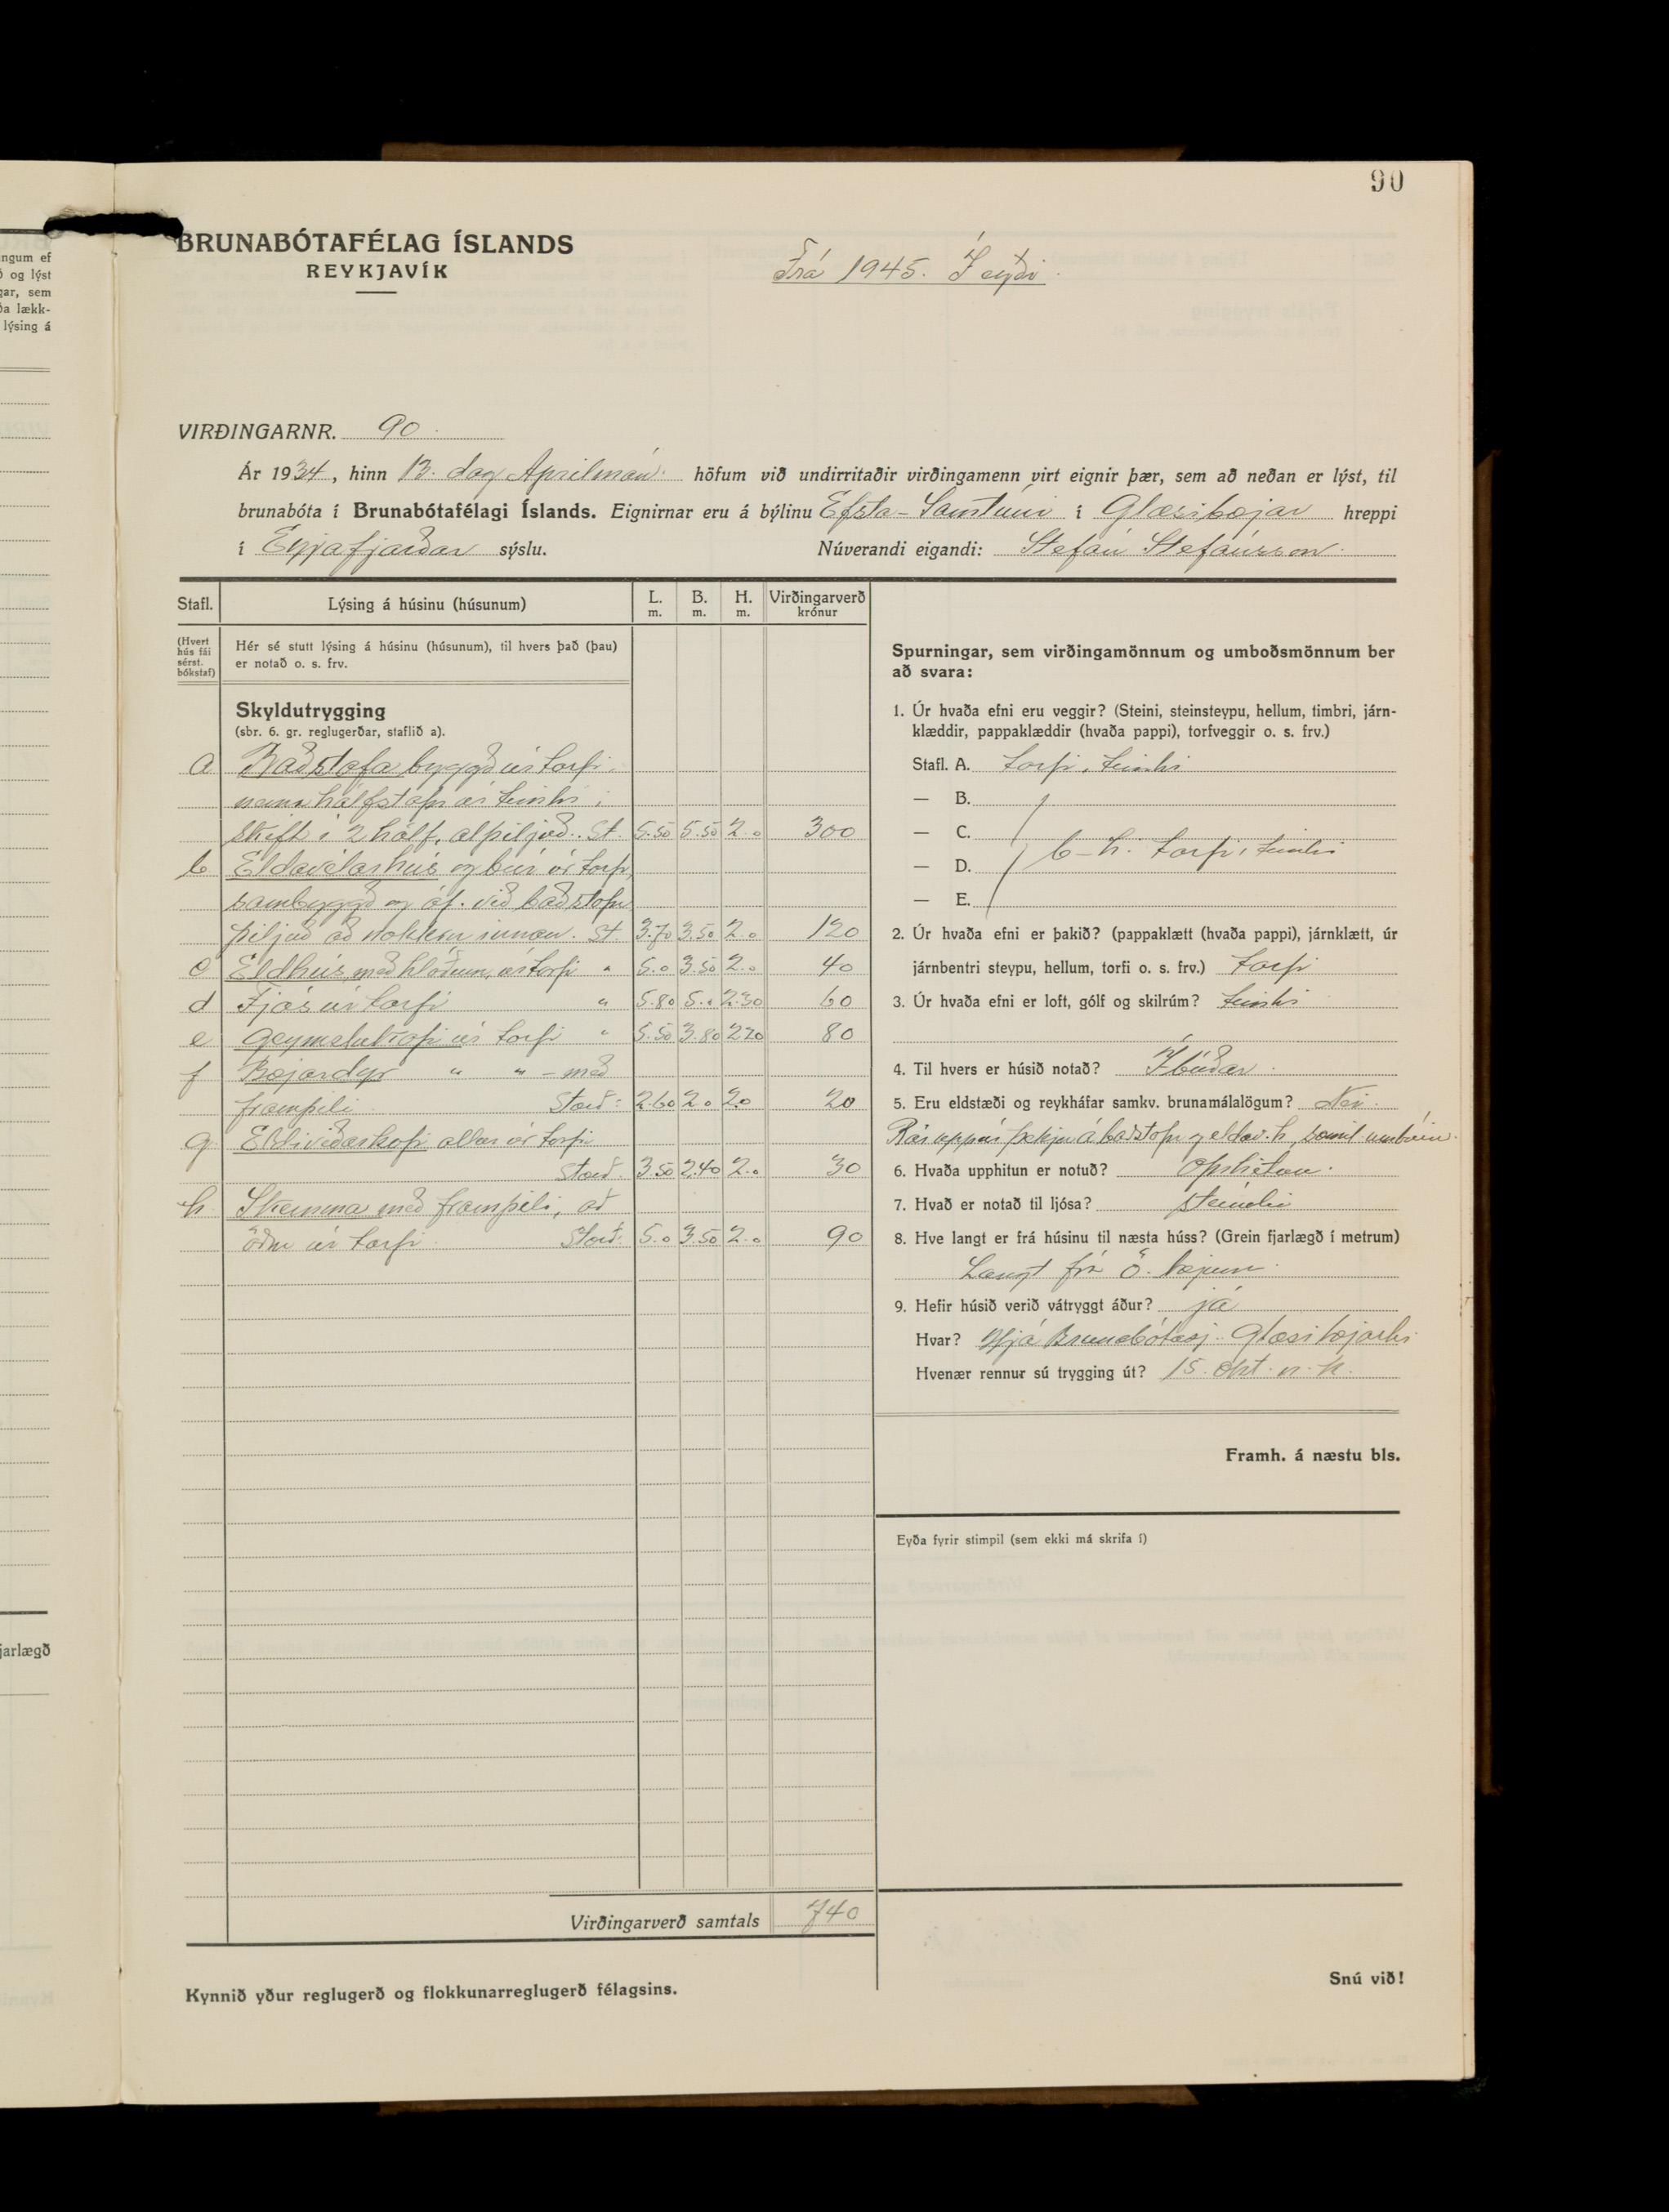 90
BRUNABÓTAFÉLAG ÍSLANDS
REYKJAVÍK
Frá 1945. Í eyði.
VIRÐINGARNR. 90.
Ár 1934, hinn 13. dag Aprilmán. höfum við undirritaðir virðingamenn virt eignir þær, sem að neðan er lýst, til
brunabóta í Brunabótafélagi Íslands. Eignirnar eru á býlinu Efsta-Samtúni í Glæsibæjar hreppi
í Eyjafjarðar sýslu. Núverandi eigandi: Stefán Stefánsson.
Stafl. Lýsing á húsinu (húsunum) L. m. B. m. H. m. Virðingarverð krónur
(Hvert hús fái sérst. bókstaf)
Hér sé stutt lýsing á húsinu (húsunum), til hvers það (þau)
er notað o. s. frv.
Skyldutrygging
(sbr. 6. gr. reglugerðar, staflið a).
a Baðstofa byggð úr torfi,
nema hálfstafn úr timbri;
skift í 2 hólf, alþiljuð. St. 5.50 5.50 2.0 300
b Eldavélarhús og búr úr torfi,
sambyggð og áf. við baðstofu
þiljuð að nokkru innan. St. 3.70 3.50 2.0 120
c Eldhús, með hlóðum, úr torfi " 5.0 3.50 2.0 40
d Fjós úr torfi " 5.80 5.0 2.30 60
e Geymslukofi úr torfi " 5.50 3.80 2.20 80
f Bæjardyr " " - með
framþili Stærð: 2.60 2.0 2.0 20
g. Eldiviðarkofi allur úr torfi
Stærð. 3.50 2.40 2.0 30
h. Skemma með framþili, að
öðru úr torfi. Stærð. 5.0 3.50 2.0 90
Virðingarverð samtals 740
Kynnið yður reglugerð og flokkunarreglugerð félagsins.
Spurningar, sem virðingamönnum og umboðsmönnum ber
að svara:
1. Úr hvaða efni eru veggir? (Steini, steinsteypu, hellum, timbri, járn-
klæddir, pappaklæddir (hvaða pappi), torfveggir o. s. frv.)
Stafl. A. torfi, timbri
— B.
— C.
b-h. torfi, timbri
— D.
— E.
2. Úr hvaða efni er þakið? (pappaklætt (hvaða pappi), járnklætt, úr
járnbentri steypu, hellum, torfi o. s. frv.) torfi
3. Úr hvaða efni er loft, gólf og skilrúm? timbri
4. Til hvers er húsið notað? Íbúðar.
5. Eru eldstæði og reykháfar samkv. brunamálalögum? Nei.
Rör uppúr þekju á baðstofu og eldav.h, sæmil. umbúin.
6. Hvaða upphitun er notuð? Ofnhitun.
7. Hvað er notað til ljósa? steinolía
8. Hve langt er frá húsinu til næsta húss? (Grein fjarlægð í metrum)
Langt frá ö. bæjum.
9. Hefir húsið verið vátryggt áður? já
Hvar? Hjá Brunabótasj. Glæsibæjarhr.
Hvenær rennur sú trygging út? 15. okt. n. k.
Framh. á næstu bls.
Eyða fyrir stimpil (sem ekki má skrifa í)
Snú við!
ngum ef
ð og lýst
gar, sem
ða lækk-
lýsing á
jarlægð